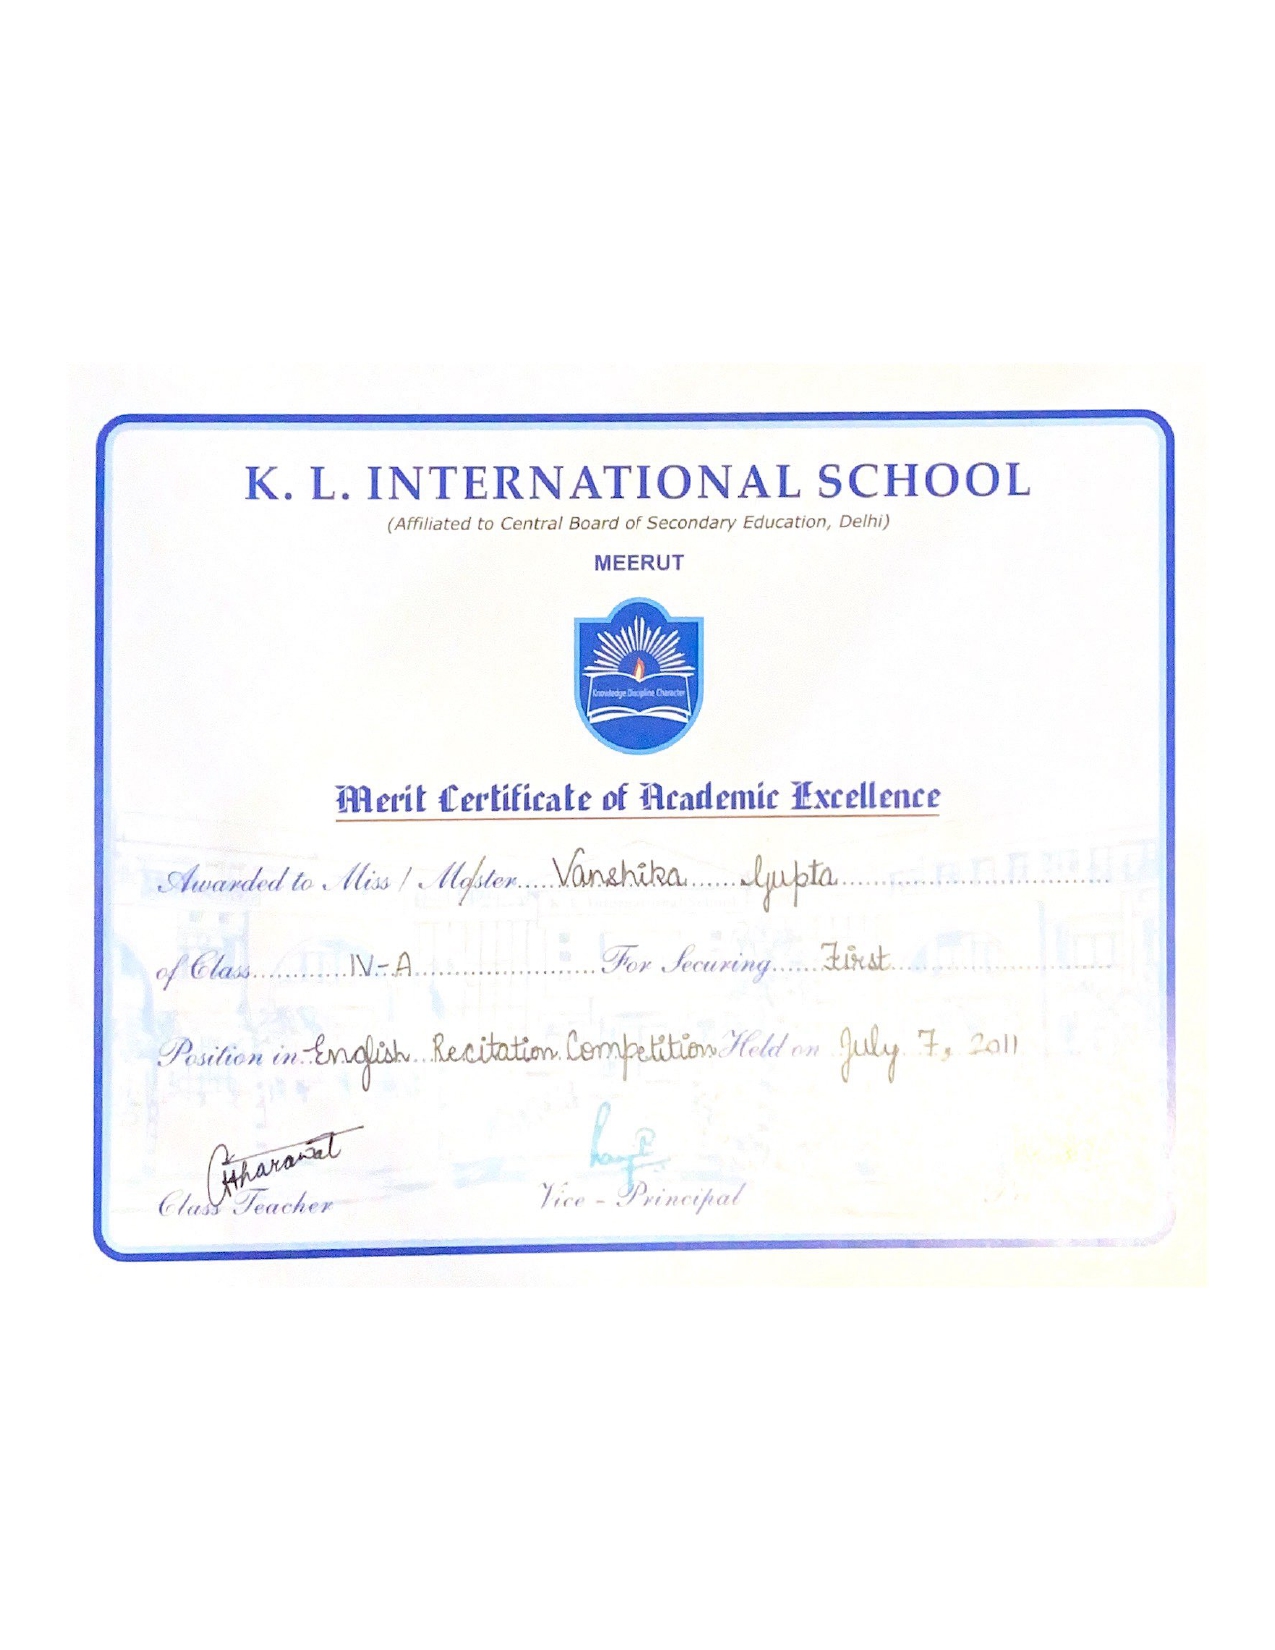 K. L. INTERNATIONAL SCHOOL
(Affiliated to Central Board of Secondary Education, Delhi)
MEERUT
Knowledge Discipline Character
Merit Certificate of Academic Excellence
Awarded to Miss / Master Vanshika Gupta
of Class IV-A For Securing First
Position in English Recitation Competition Held on July 7, 2011
Class Teacher Vice - Principal